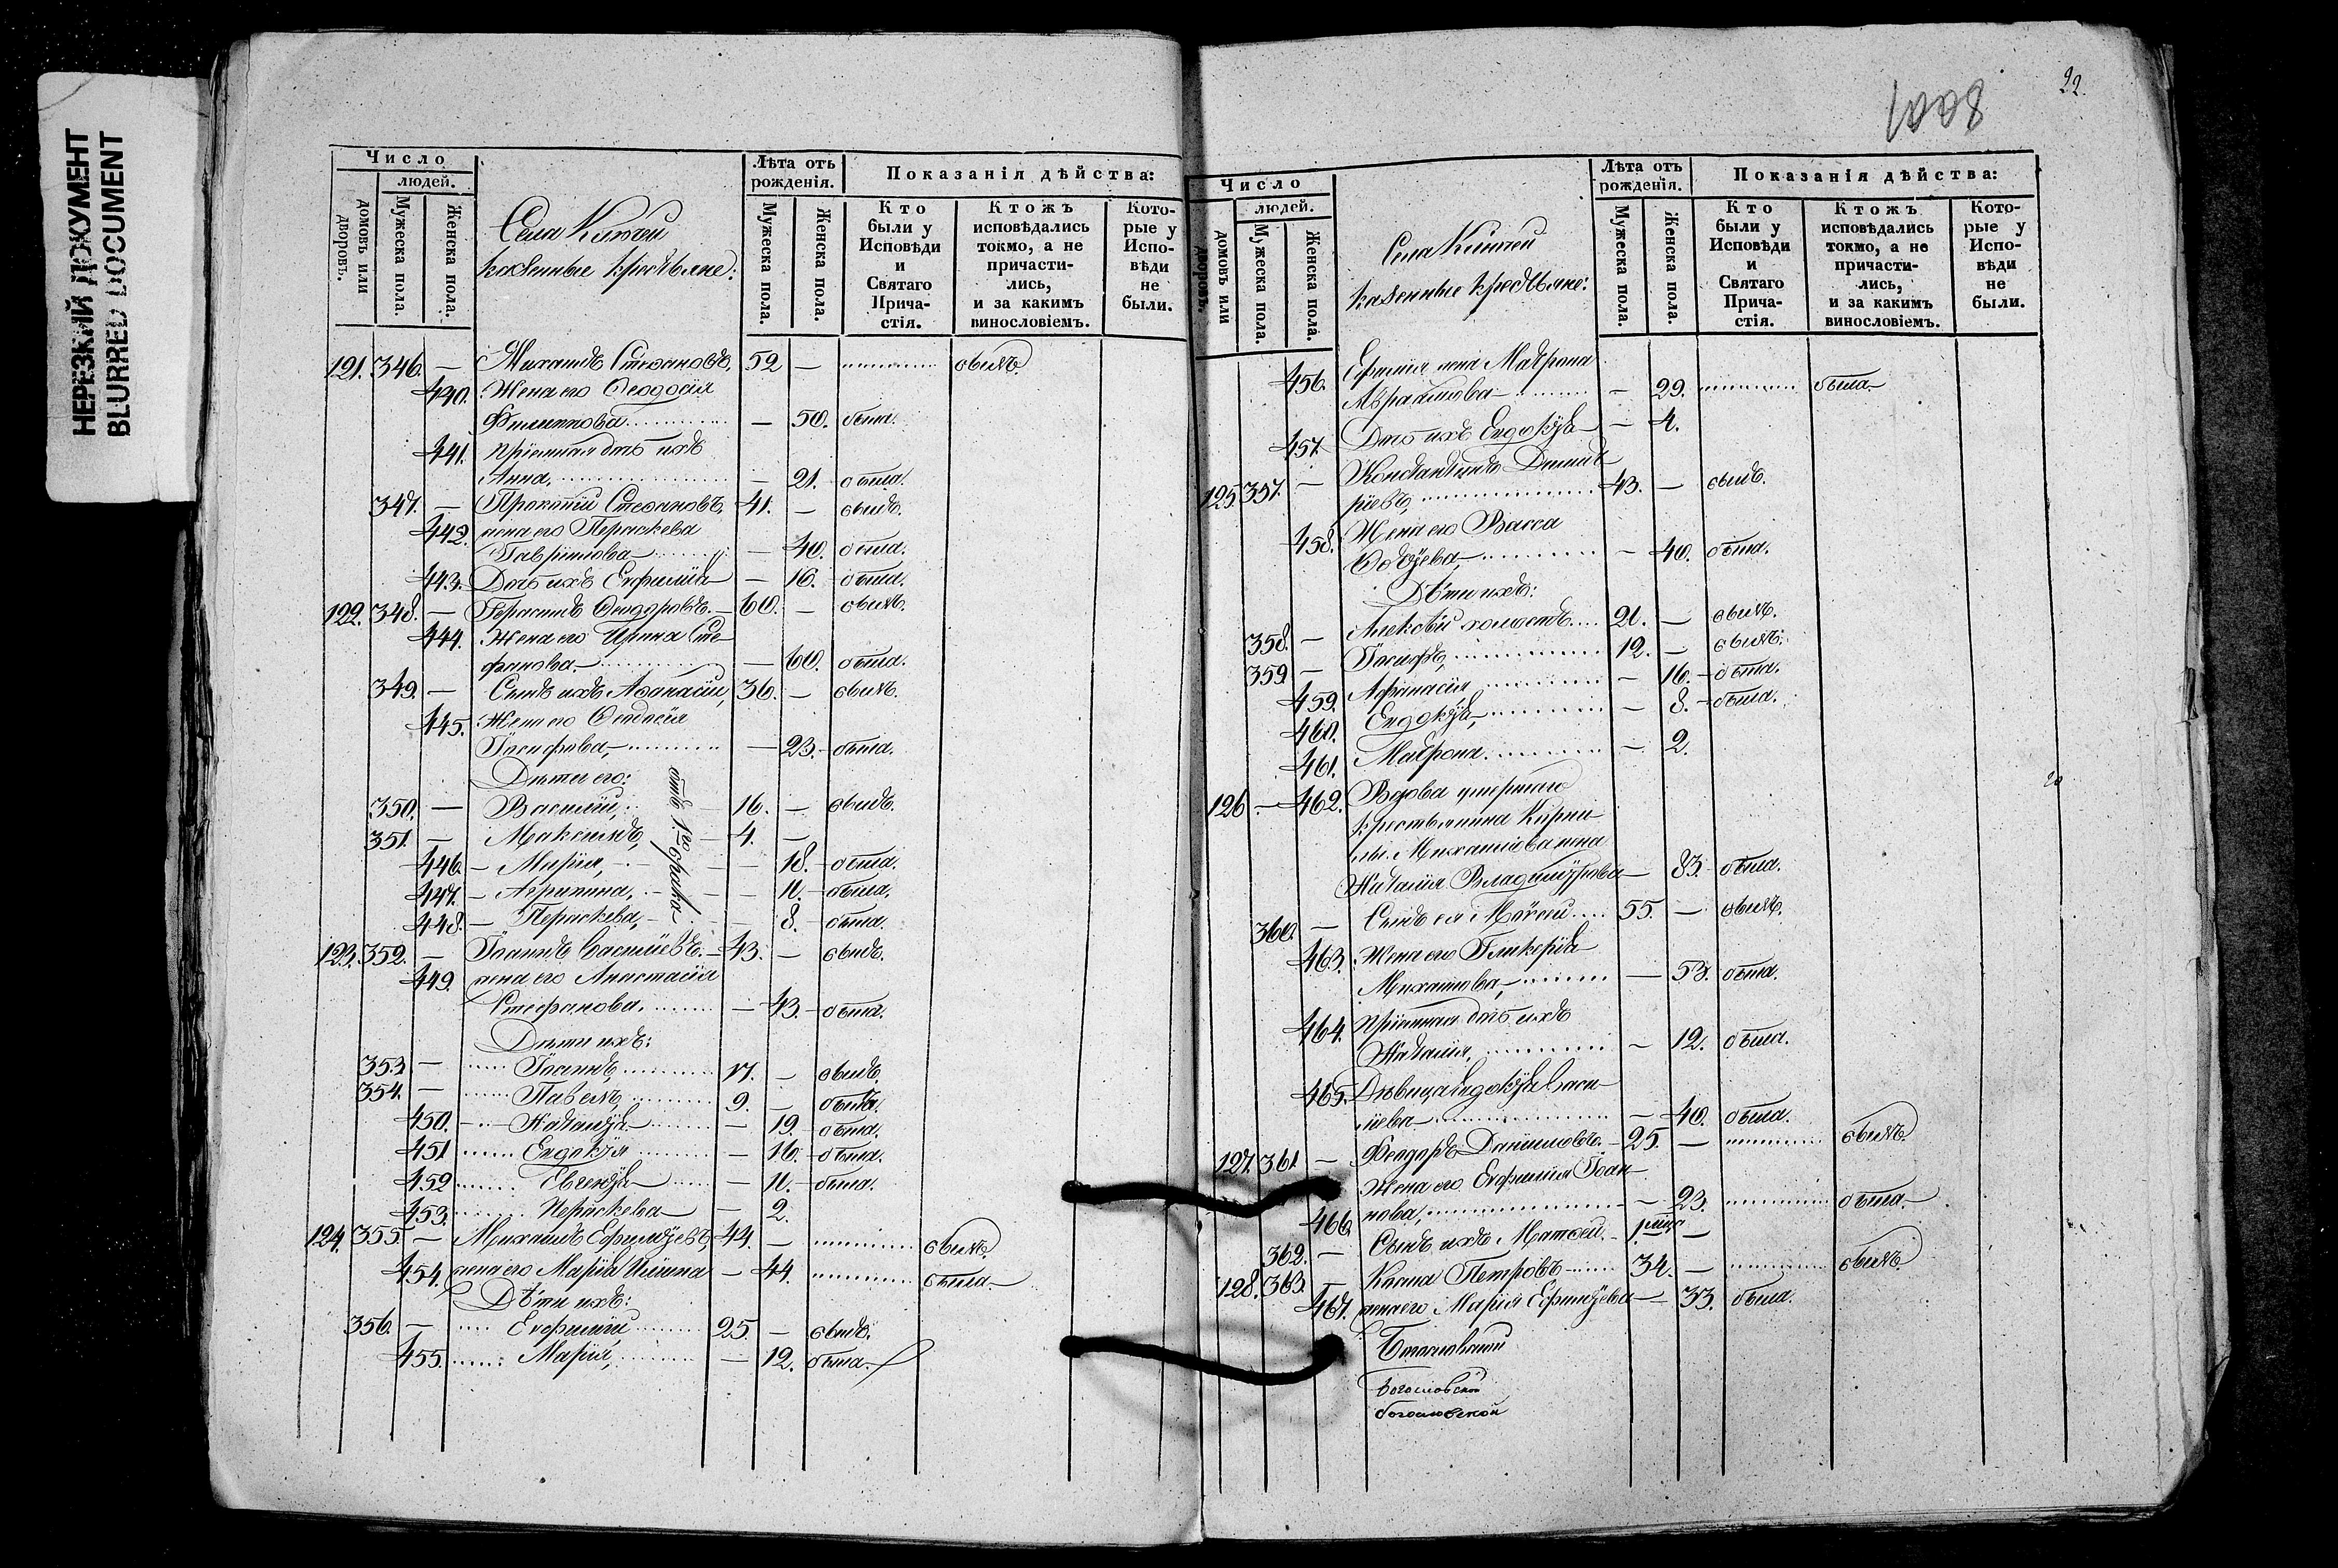 НЕРЕЗКИЙ ДОКУМЕНТ
BLURRED DOCUMENT
Число
людей.
домовъ или дворовъ.
Мужеска пола.
Женска пола.
Села
казенные крестьяне:
Лѣта отъ рожденія.
Мужеска пола.
Женска пола.
Показанія дѣйства:
Кто были у Исповѣди и Святаго Прича-стія.
Ктожъ исповѣдались токмо, а не причасти-лись, и за какимъ винословіемъ.
Кото-рые у Испо-вѣди не были.
121. 346. — Михаилъ Стефановъ, 52 — былъ.
440. Жена его Феодосія
Филиппова — 50. была.
441. Пріемная дочь ихъ
Анна, — 21. была.
347. — Прокопій Стефановъ, 41. — былъ.
442. жена его Параскева
Гавриилова — 40. была.
443. Дочь ихъ Евфимія — 16. была.
122. 348. — Герасимъ Феодоровъ. 60. — былъ.
444. Жена его Ирина Сте-
фанова — 60. была.
349. — Сынъ ихъ Афанасій, 36. — былъ.
445. Жена его Феодосія
Іосифова, — 23. была.
Дѣти его: отъ 1го брака
350. — Василій, 16. — былъ.
351. — Максимъ, 4. —
446. — Марія, — 18. была.
447. — Агрипина, — 11. была.
448. — Параскева, — 8. была.
123. 352. — Іоаннъ Васильевъ. 43. — былъ.
449. жена его Анастасія
Стефанова. — 43. была.
Дѣти ихъ:
353. — Іоаннъ, 17. — былъ.
354. — Павелъ, 9. — былъ.
450. — Наталія — 19. была.
451. Евдокія — 16. была.
452. Евгенія — 11. была.
453. Параскева — 2.
124. 355. — Михаилъ Ефиміевъ, 44. — былъ.
454. жена его Марія Ильина — 44. была
Дѣти ихъ:
356. — Евфимій 25. — былъ.
455. Марія, — 12. была.
1008
22.
Число
людей.
домовъ или дворовъ.
Мужеска пола.
Женска пола.
Села
казенные крестьяне:
Лѣта отъ рожденія.
Мужеска пола.
Женска пола.
Показанія дѣйства:
Кто были у Исповѣди и Святаго Прича-стія.
Ктожъ исповѣдались токмо, а не причасти-лись, и за какимъ винословіемъ.
Кото-рые у Испо-вѣди не были.
456. Ефимія жена Матрона
Авраамова — 29. была
457. Дочь ихъ Евдокія — 4.
125. 357. — Константинъ Димит-
ріевъ, 43. — былъ.
458. Жена его Васса
— 40. была.
Дѣти ихъ:
358. — Алексѣй холостъ. 21. — былъ.
359. — Іосифъ, 12. — былъ.
459. Афанасія — 16. была.
460. Евдокія, — 8. была.
461. Матрона. — 2.
126 — 462. Вдова умершаго
крестьянина Кирил-
лы Михаилова жена
Наталія Владимірова — 83. была.
360. — Сынъ ея Моисей 55. — былъ.
463. Жена его Гликерія
Михайлова, — 53. была.
464. Пріемная дочь ихъ
Наталія, — 12. была.
465. Дѣвица Евдокія Васи-
льева — 40. была.
127. 361. — Феодоръ Данииловъ. 25. — былъ.
Жена его Евфимія Іоан-
466. нова, — 23. была
362. — Сынъ ихъ Матѳей. 1 мѣс —
128. 363. — Косма Петровъ 34. — былъ.
467. жена его Марія Ефиміева — 33. была.
Богословской
богословской
20